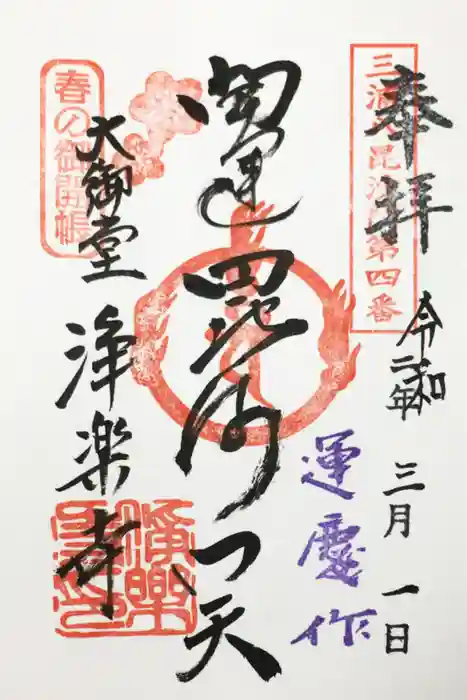 三浦 毘沙門第四番
奉拝
令和二年 三月 一日
運毘沙門天
運慶作
春の御開帳
大御堂
浄楽寺